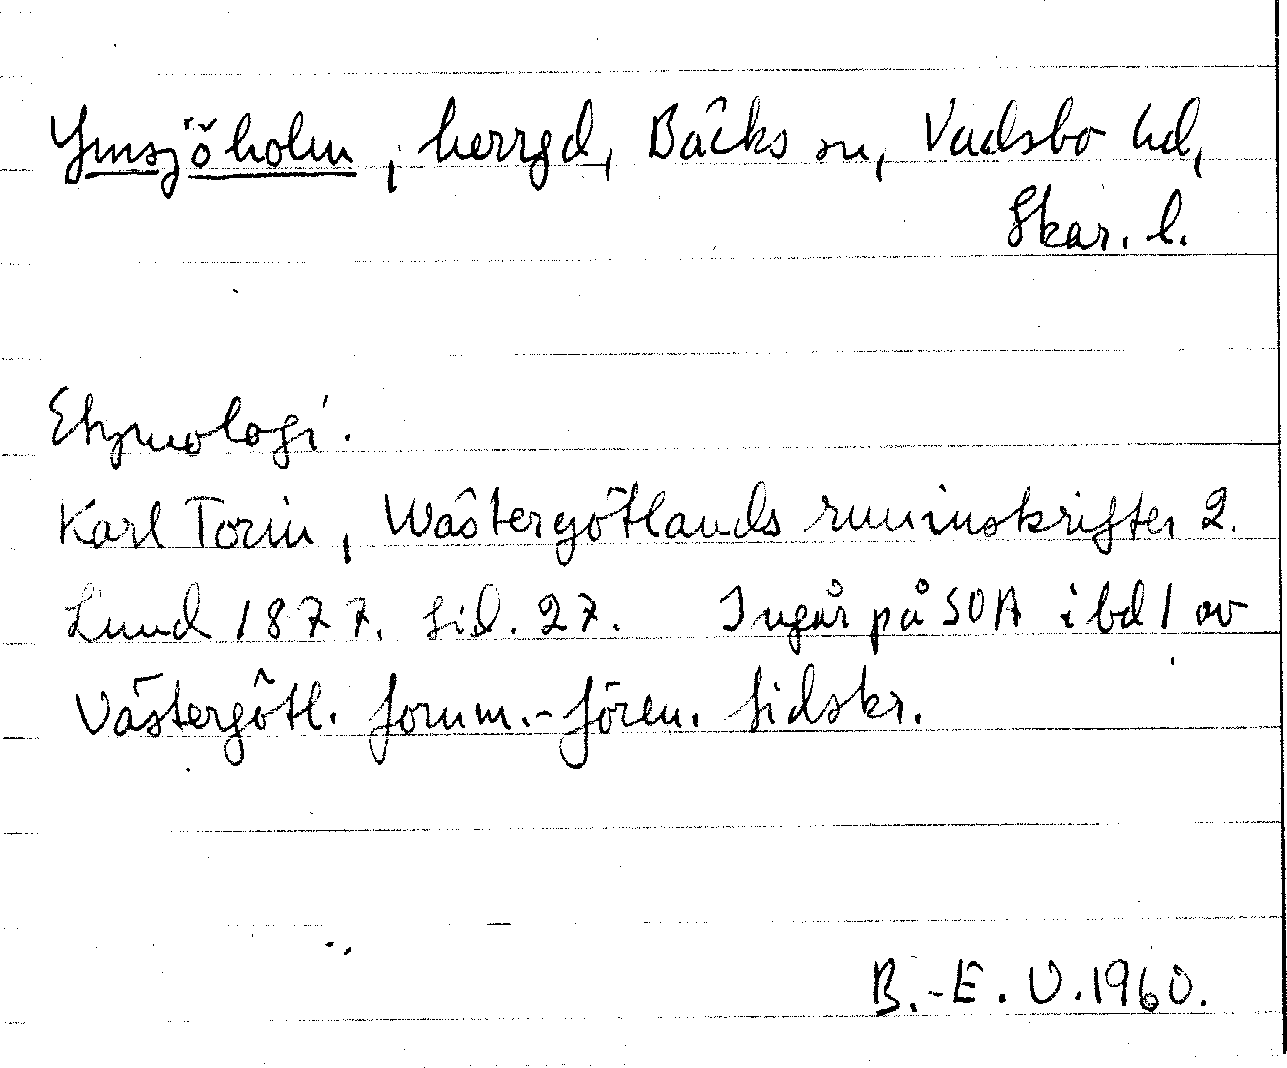 Ymsjöholm, herrgd, Bäcks sn, Vadsbo hd,
Skar. l.
Etymologi.
Karl Torin, Wästergötlands runinskrifter 2.
Lund 1877. sid. 27. Ingår på SOA i bd 1 av
Västergötl. fornm.-fören. tidskr.
B.-E. U. 1960.